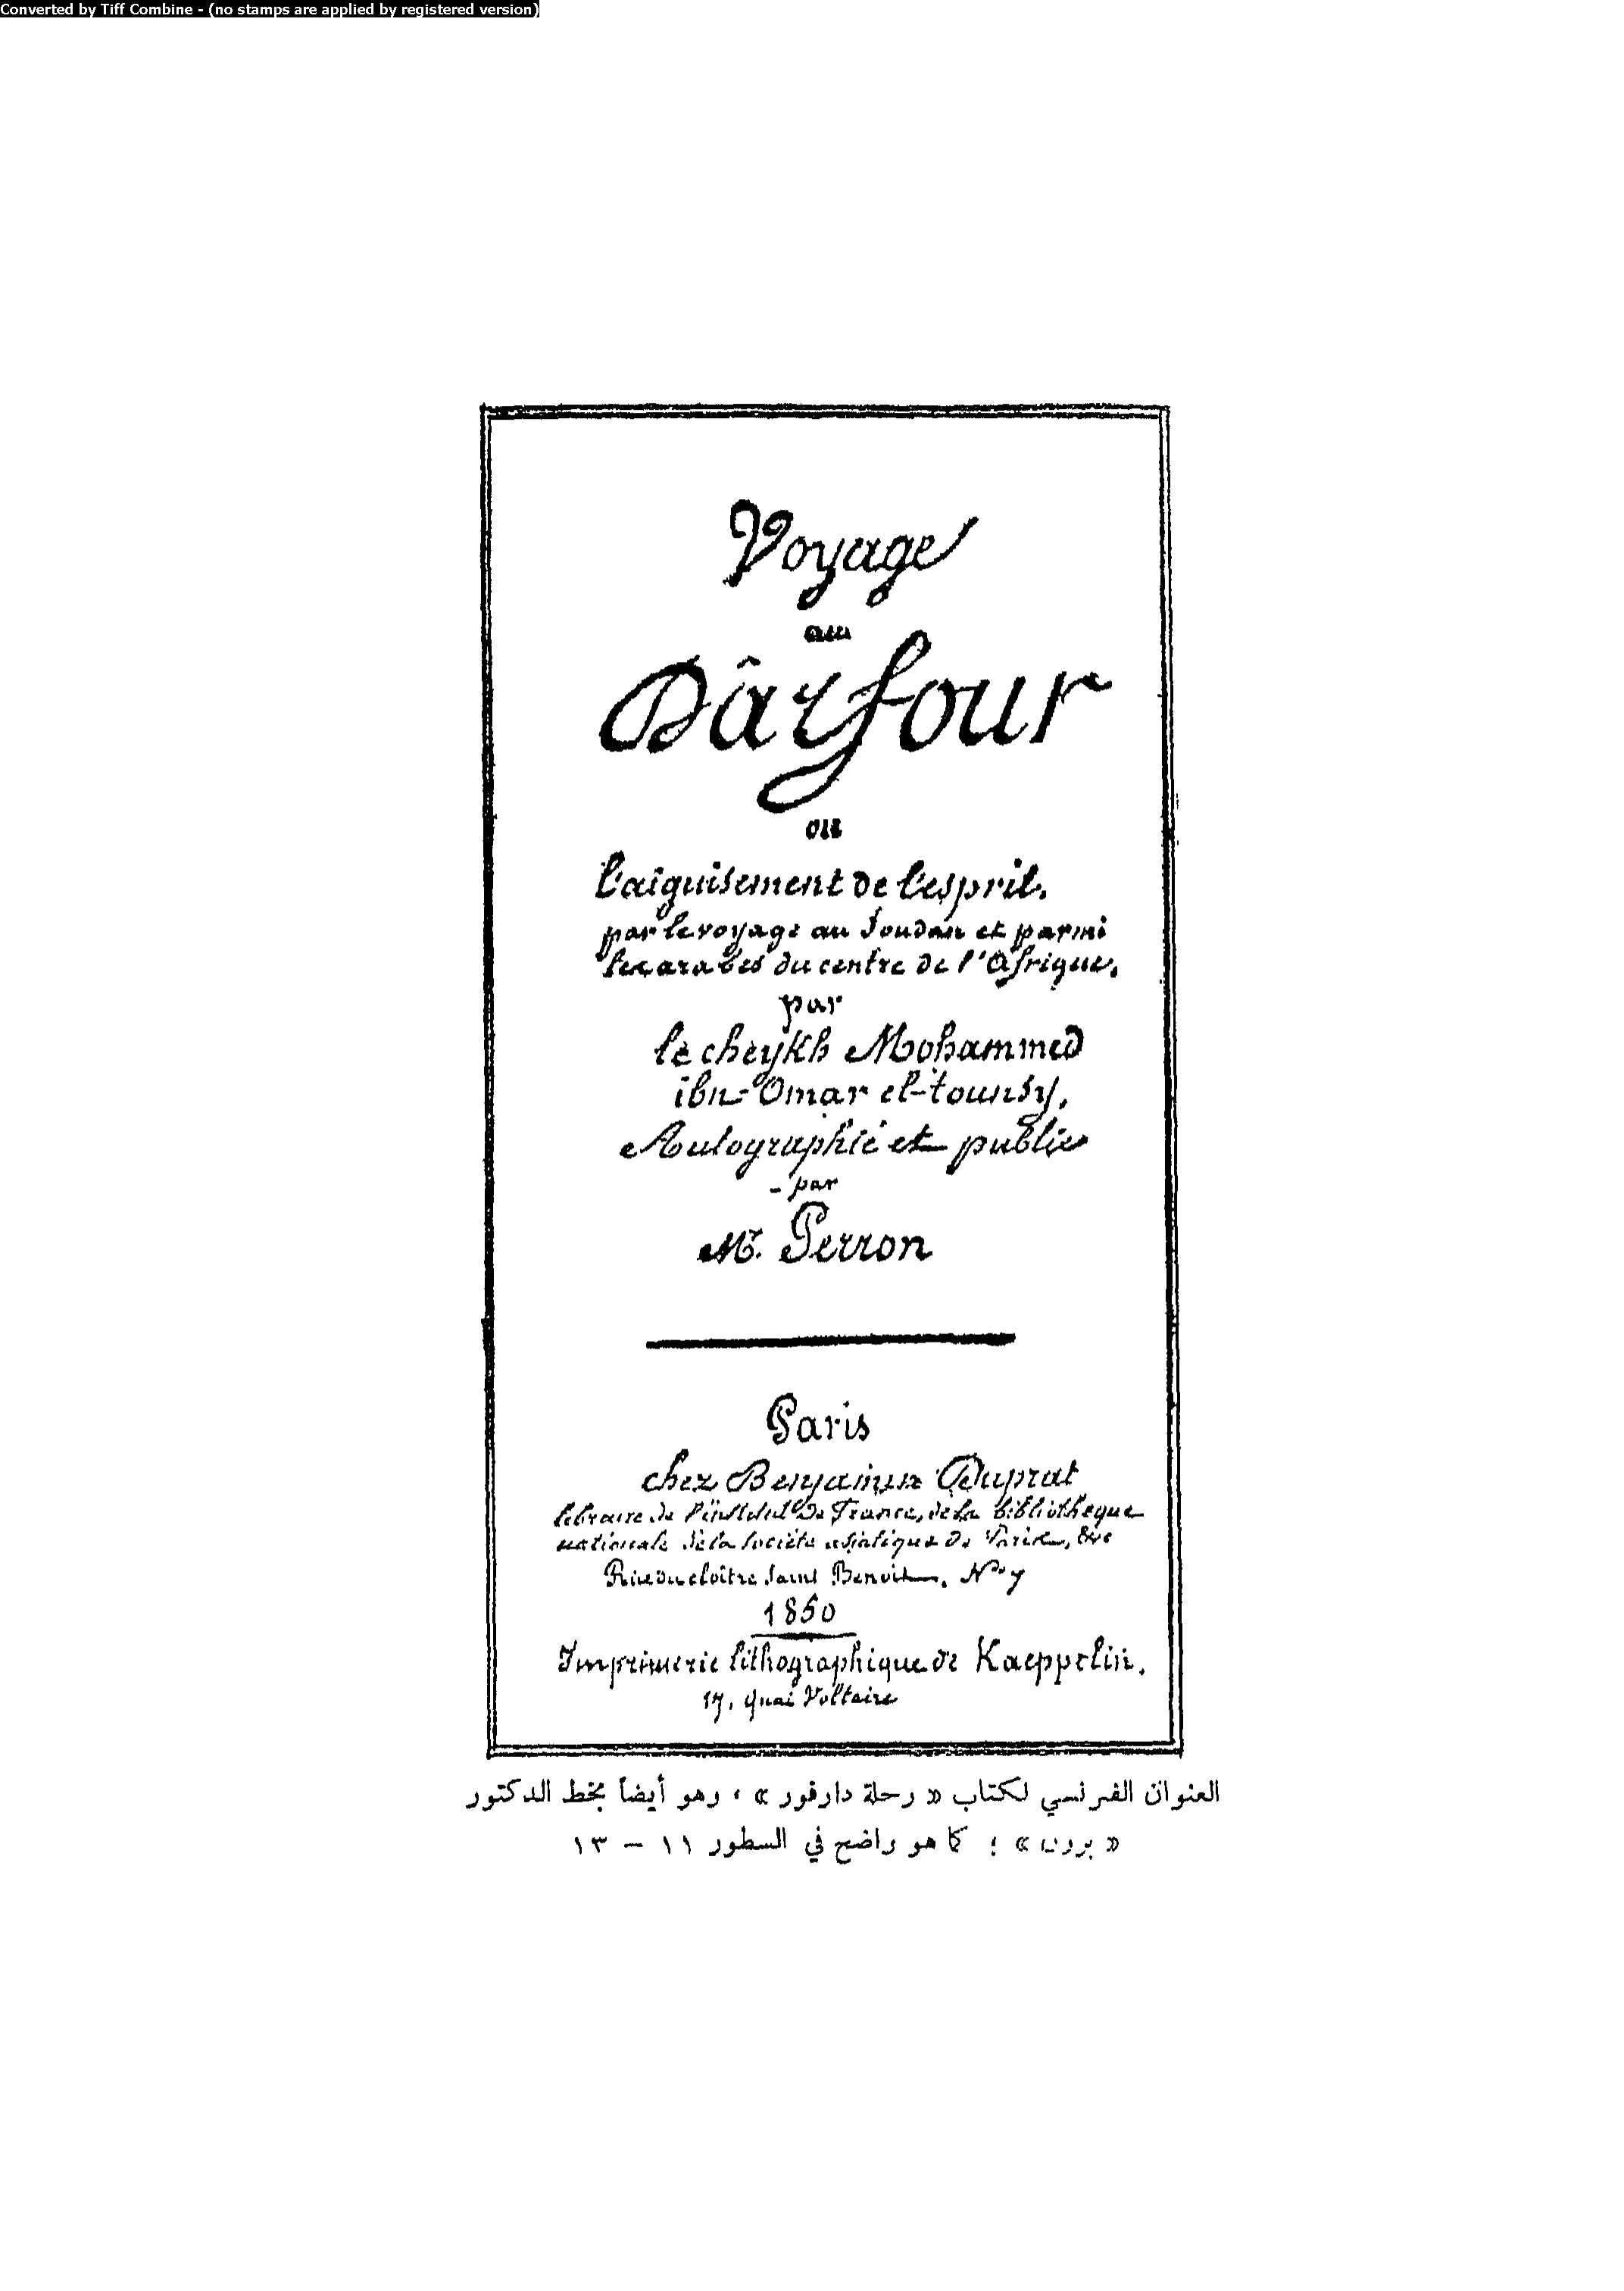 Converted by Tiff Combine - (no stamps are applied by registered version)
Voyage
au
Dârfour
ou
l'aiguisement de l'esprit.
par le voyage au Soudan et parmi
les arabes du centre de l'Afrique.
par
le cheykh Mohammed
ibn-Omar el-tounsy.
Autographié et publié
- par
Mr. Perron
Paris
chez Benjamin Duprat
libraire de l'institut de France, de la bibliothèque
nationale de la société asiatique de Paris, &c
Rue du cloître Saint Benoit. No 7
1850
Imprimerie lithographique de Kaeppelin.
17, quai Voltaire
العنوان الفرنسي لكتاب « رحلة دارفور » ، وهو أيضاً بخط الدكتور
« برون » ؛ كما هو واضح في السطور ١١ – ١٣